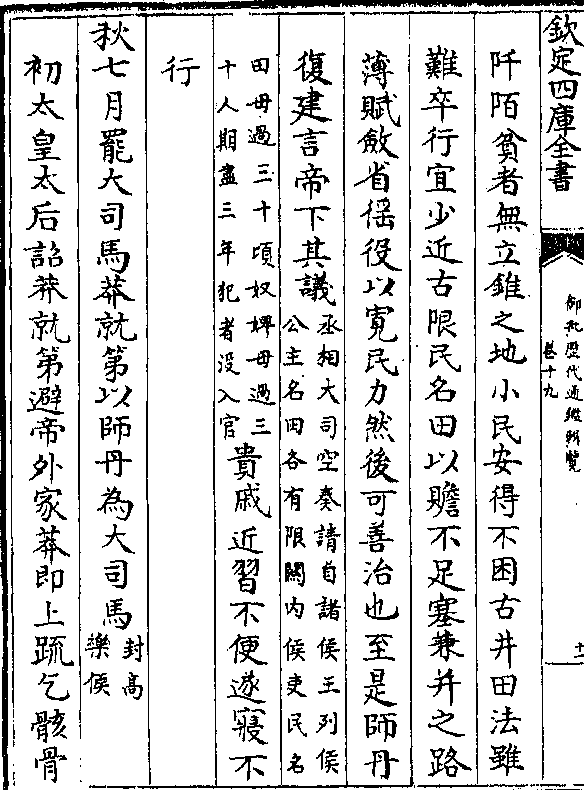 欽定四庫全書
御批歷代通鑑輯覽
卷十九
十一
阡陌貧者無立錐之地小民安得不困古井田法雖
難卒行宜少近古限民名田以贍不足塞兼并之路
薄賦斂省徭役以寛民力然後可善治也至是師丹
復建言帝下其議丞相大司空奏請自諸侯王列侯
公主名田各有限闗内侯吏民名
田毋過三十頃奴婢毋過三
十人期盡三年犯者没入官貴戚近習不便遂寢不
行
秋七月罷大司馬莽就第以師丹為大司馬封高
樂侯
初太皇太后詔莽就第避帝外家莽即上疏乞骸骨